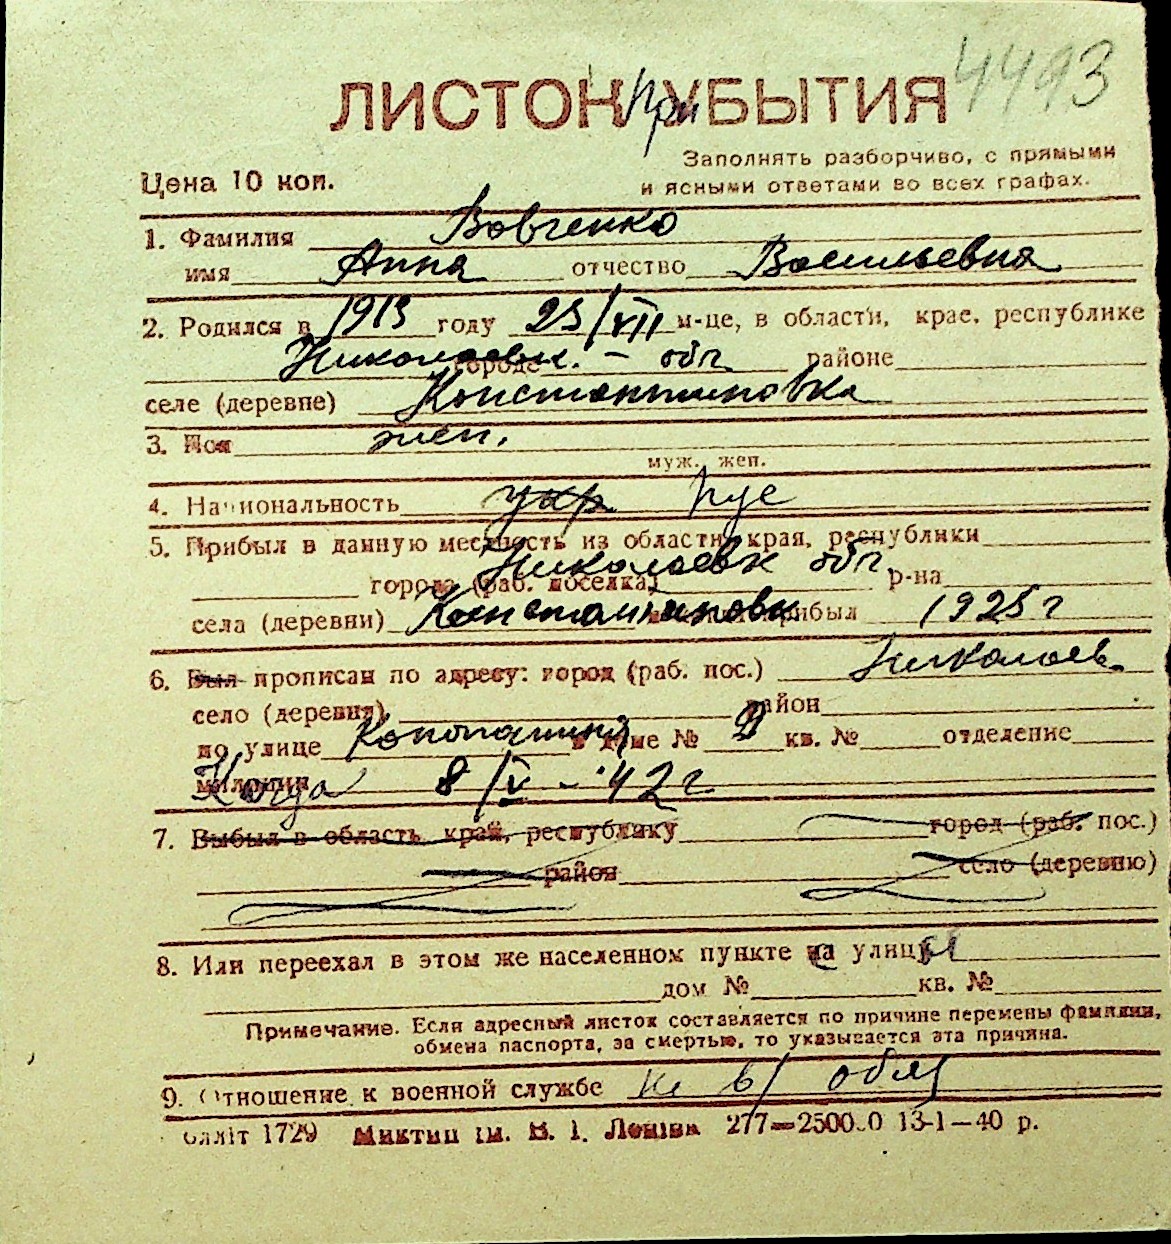 4493
ЛИСТОК При УБЫТИЯ
Заполнять разборчиво, с прямыми
и ясными ответами во всех графах.
Цена 10 коп.
1. Фамилия Вовченко
имя Анна отчество Васильевна
2. Родился в 1913 году 25/VII м-це, в области, крае, республике
Николаевск. - обл городе районе
селе (деревне) Константиновка
3. Пол жен.
муж. жен.
4. Национальность укр рус
5. Прибыл в данную местность из области, края, республики
Николаевск обл города (раб. поселка) р-на
села (деревни) Константиновк прибыл 1925 г
6. Был прописан по адресу: город (раб. пос.) Николаев
село (деревня) район
по улице в доме № кв. № отделение
милиции Когда 8/V - 42 г
7. Выбыл в область, край, республику город (раб. пос.)
район село (деревню)
8. Или переехал в этом же населенном пункте на улицу
дом № кв. №
Примечание. Если адресный листок составляется по причине перемены фамилии,
обмена паспорта, за смертью, то указывается эта причина.
9. Отношение к военной службе не в/обяз
1729 ім. В. І. Леніна 277—2500.0 13-1—40 р.